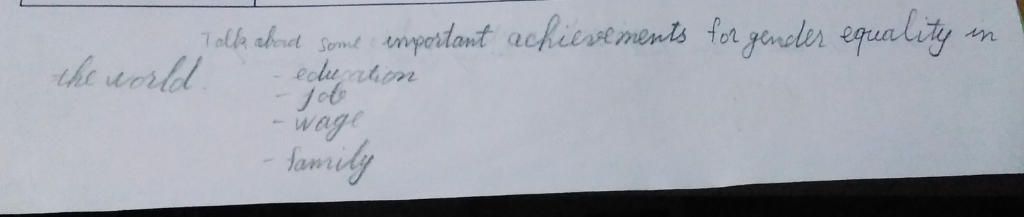 Talk about some important achievements for gender equality in
the world.
- education
- job
- wage
- family